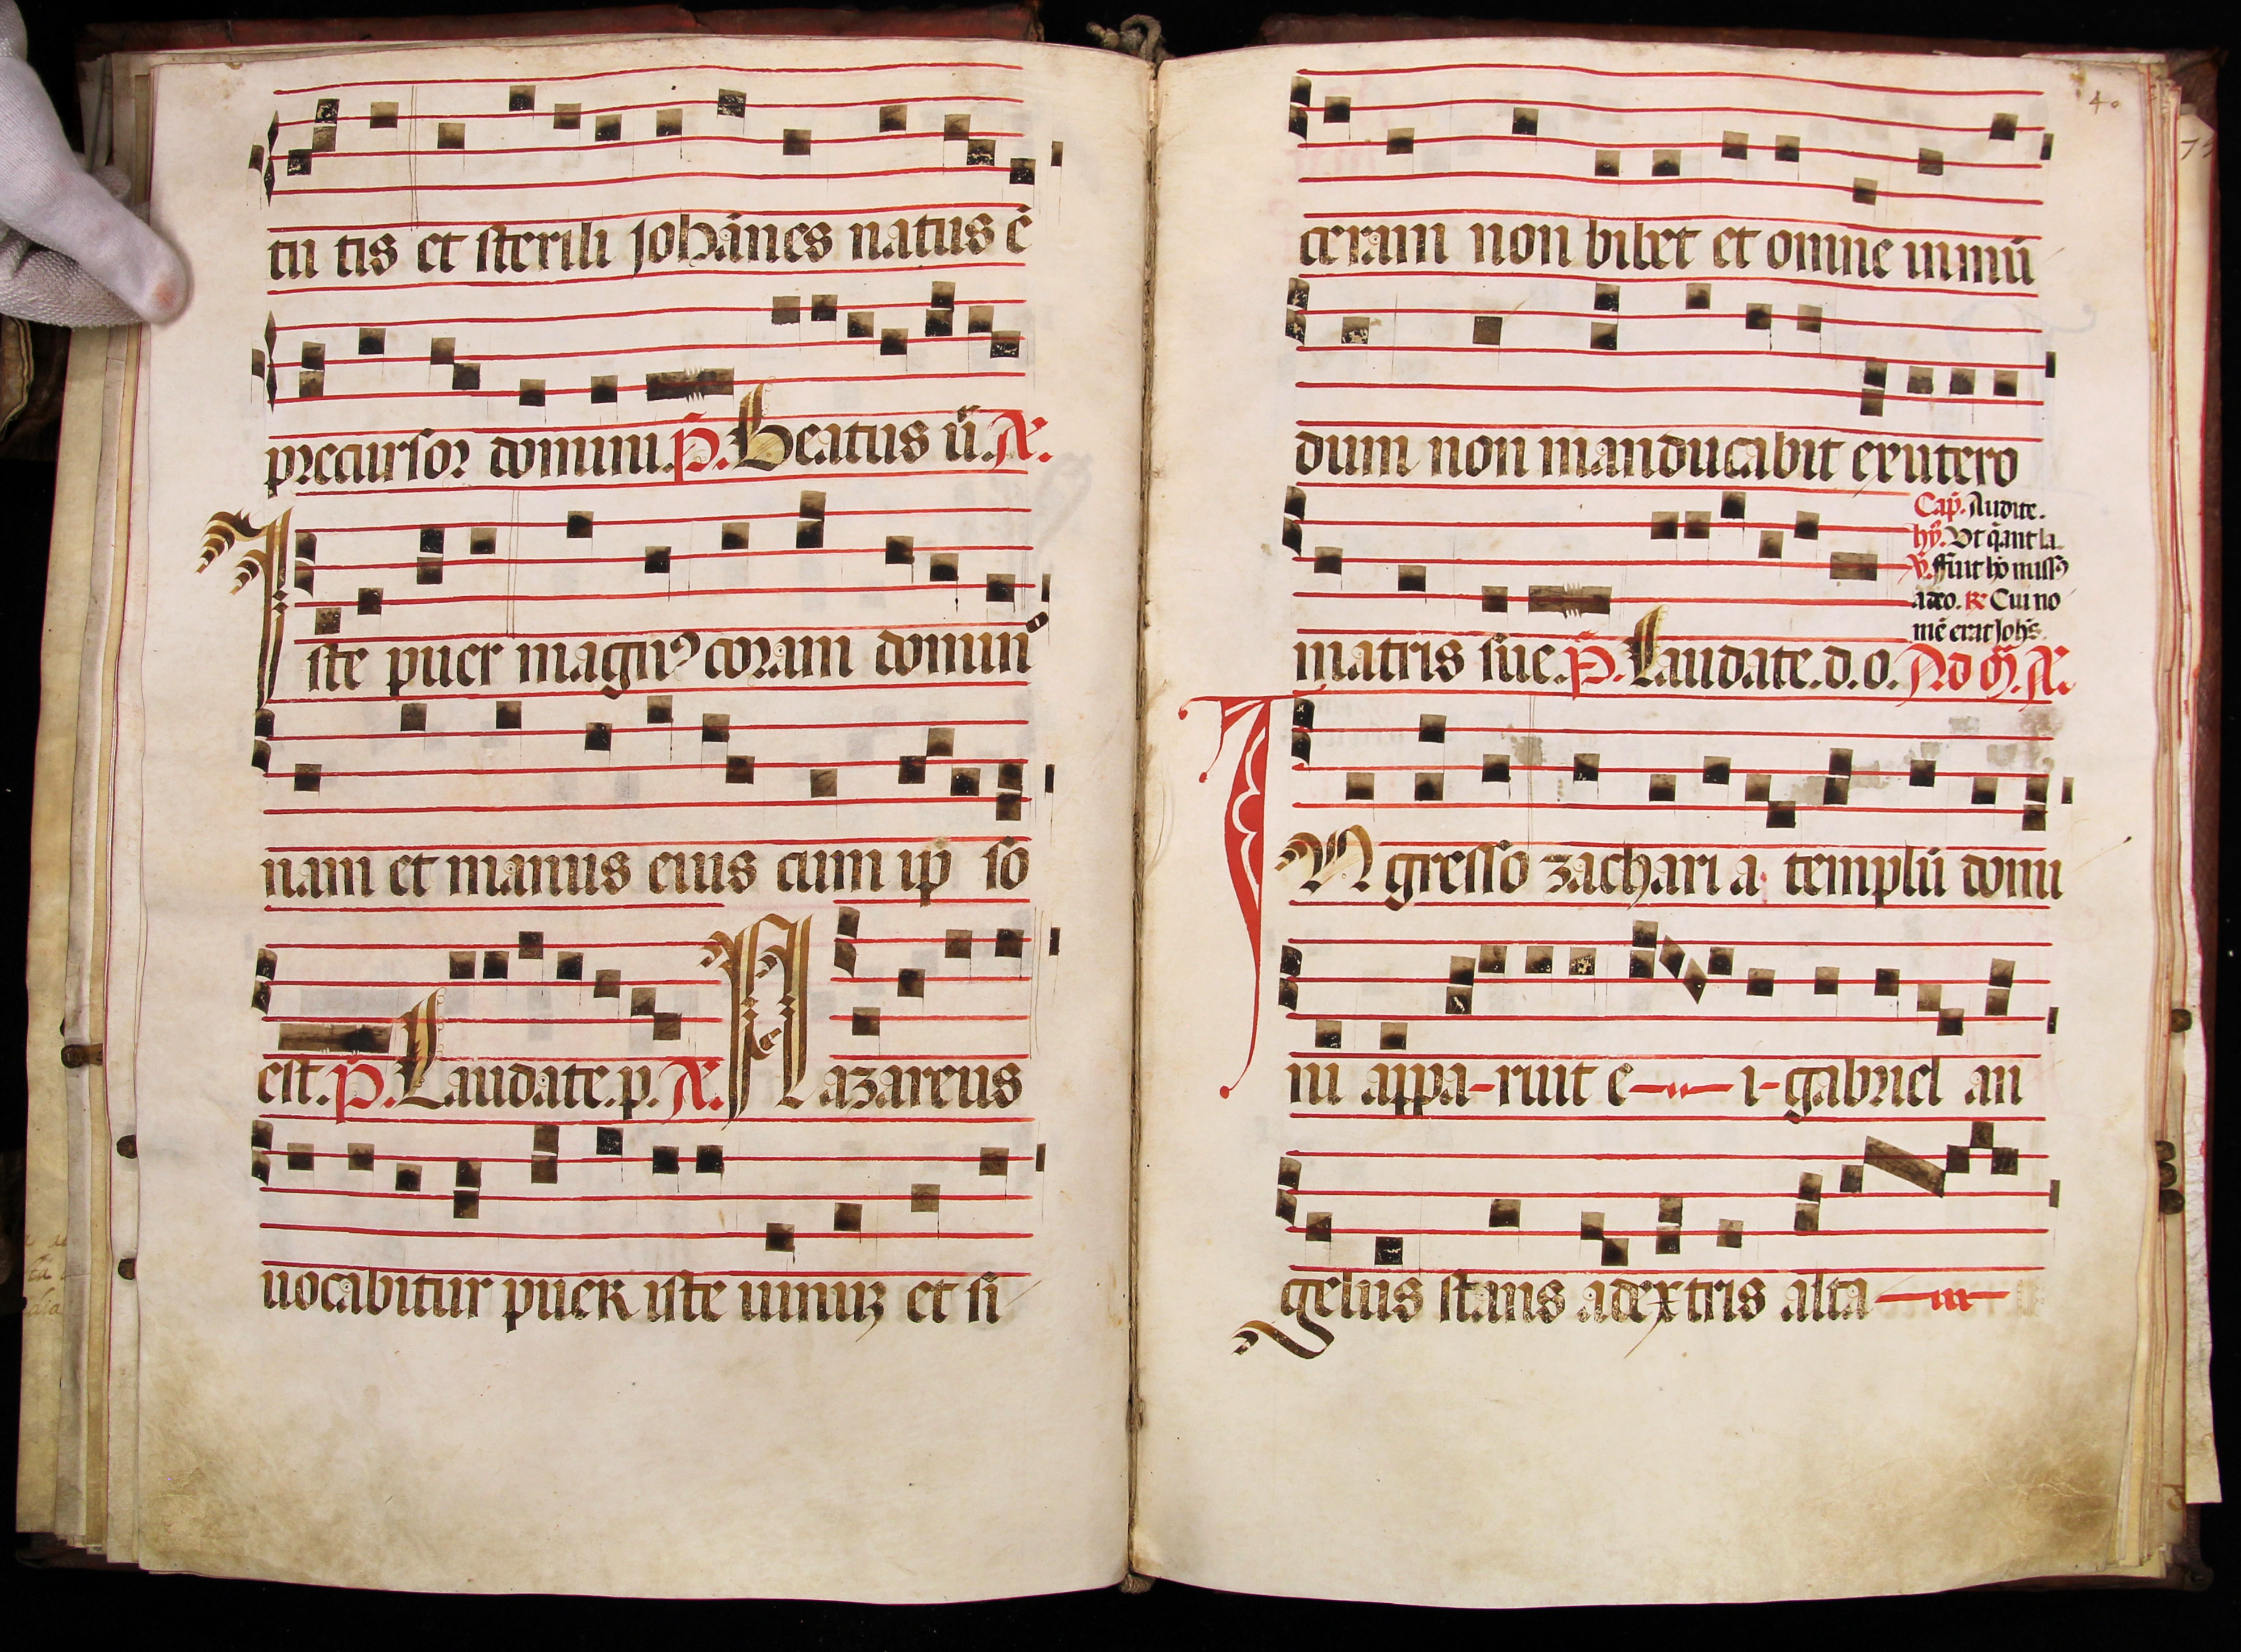 tu tis et sterili johānes natus ē
precursor domini. p̄. Beatus ū. A.
Iste puer magnꝰ coram domin
nam et manus eius cum ip̄ so
est. p̄. Laudate. p. A. Nazareus
uocabitur puer iste uinuꝫ et si
40
ceram non bibet et omne inmū
dum non manducabit exutero
matris sue. p̄. Laudate. d. o. Ad M̄. A.
Cap̄. Audite.
hȳ. Ut q̄ant la.
v̄. ffuit hō missꝰ
adeo. R Cui no
mē erit Joh̄s.
INgresso zachari a templū domi
ni appa-ruit e i-gabriel an
gelus stans adextris alta